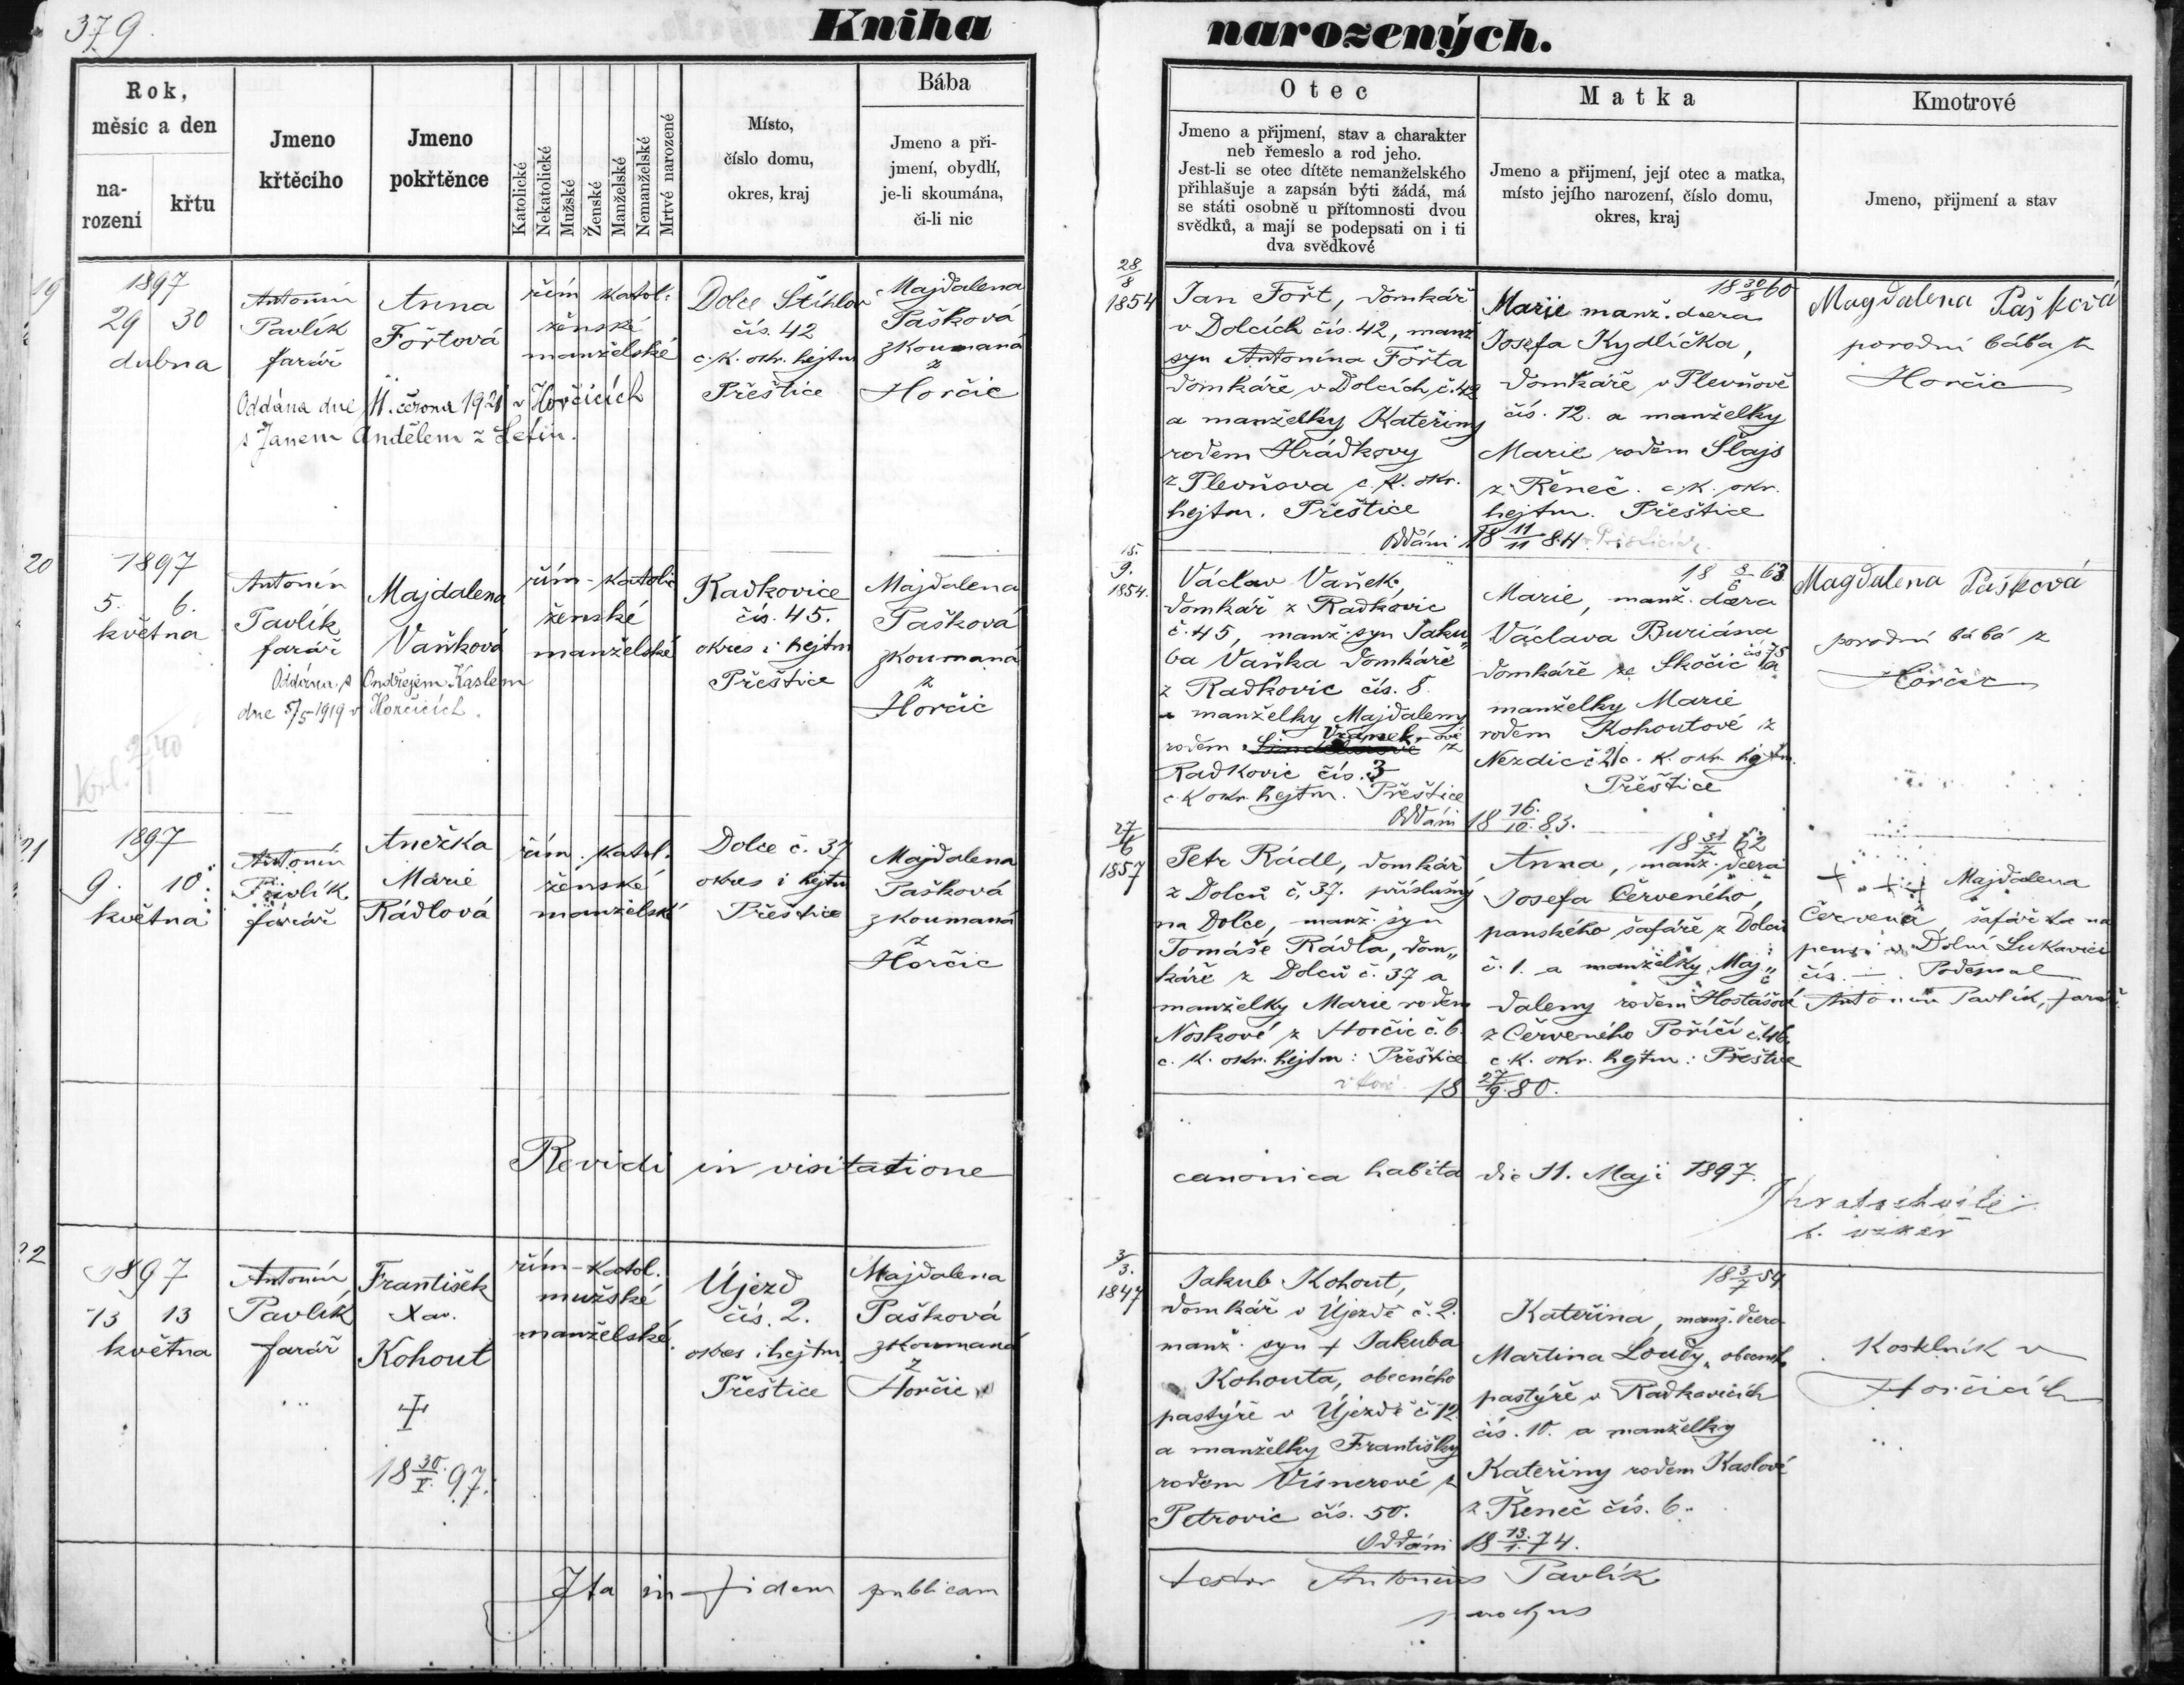 379.
Kniha
narozených.
Rok,
měsíc a den
na-
rození
křtu
Jmeno
křtěcího
Jmeno
pokřtěnce
Katolické
Nekatolické
Mužské
Ženské
Manželské
Nemanželské
Mrtvé narozené
Místo,
číslo domu,
okres, kraj
Bába
Jmeno a při-
jmení, obydlí,
je-li skoumána,
či-li nic
Otec
Jmeno a přijmení, stav a charakter
neb řemeslo a rod jeho.
Jest-li se otec dítěte nemanželského
přihlašuje a zapsán býti žádá, má
se státi osobně u přítomnosti dvou
svědků, a mají se podepsati on i ti
dva svědkové
Matka
Jmeno a přijmení, její otec a matka,
místo jejího narození, číslo domu,
okres, kraj
Kmotrové
Jmeno, přijmení a stav
19
1897
29 30
dubna
Antonín
Pavlík
farář
Anna
Fořtová
řím katol.
ženské
manželské
Dolce Štíhlov
čís. 42
c. k. okr. hejtm
Přeštice
Majdalena
Pašková
zkoumaná
z
Horčic
Oddána dne 11. června 1921 v Horčicích
s Janem Andělem z Letin.
28/8
1854
Jan Fořt, domkář
v Dolcích čís. 42, manž
syn Antonína Fořta
domkáře v Dolcích č. 42
a manželky Kateřiny
rodem Hrádkovy
z Plevňova c. k. okr.
hejtm. Přeštice
Oddáni 18 11/11 84
18 30/8 60
Marie manž. dcera
Josefa Kydlíčka,
domkáře v Plevňově
čís. 12. a manželky
Marie rodem Šlajs
z Řeneč. c. k. okr.
hejtm. Přeštice
Magdalena Pašková
porodní bába z
Horčic
20
1897
5. 6.
května
Antonín
Pavlík
farář
Majdalena
Vaňková
řím-katolic
ženské
manželské
Radkovice
čís. 45.
okres i hejtm
Přeštice
Majdalena
Pašková
zkoumaná
z
Horčic
Oddána s Ondřejem Kaslem
dne 5/5 1919 v Horčicích.
15.
9.
1854.
Václav Vaněk,
domkář z Radkovic
č. 45, manž. syn Jaku„
ba Vaňka domkáře
z Radkovic čís. 8.
a manželky Majdaleny
rodem Vránek-ové z
Radkovic čís. 3
c. k okr. hejtm. Přeštice
Oddáni 18 16./10. 83.
18 8/6 63
Marie, manž. dcera
Václava Buriána
domkáře ze Skočic čís 75 a
manželky Marie
rodem Kohoutové z
Nezdic č 21 c. k. okr. hejtm.
Přeštice
Magdalena Pašková
porodní bábá z
Horčic
21
1897
9. 10.
května
Antonín
Pavlík
farář
Anežka
Marie
Rádlová
řím. katol.
ženské
manželské
Dolce č. 37
okres i hejtm
Přeštice
Majdalena
Pašková
zkoumaná
z
Horčic
27/6
1857
Petr Rádl, domkář
z Dolců č. 37. příslušný
na Dolce, manž. syn
Tomáše Rádla, dom„
káře z Dolců č. 37 a
manželky Marie rodem
Noskové z Horčic č. 6.
c. k. okr. hejtm: Přeštice
18 27/9. 80.
Anna, manž. dcera
Josefa Červeného,
panského šafáře z Dolců
č. 1. a manželky Maj„
daleny rodem Hostašové
z Červeného Poříčí č. 46,
c. k. okr. hejtm: Přeštice
+++ Majdalena
Červená šafářka na
pensi v Dolní Lukavici
čís. —. Podepsal
Antonín Pavlík, farář.
Revidi in visitatione
canonica habita die 11. Maji 1897.
b. vikář
22
1897
13 13
května
Antonín
Pavlík
farář
František
Xav.
Kohout
†
18 30./X. 97.
řím-katol.
mužské
manželské.
Újezd
čís. 2.
okres i hejtm.
Přeštice
Majdalena
Pašková
zkoumaná
z
Horčic
3/3.
1847
Jakub Kohout,
domkář v Újezdě č. 2.
manž. syn † Jakuba
Kohouta, obecného
pastýře v Újezdě č 12.
a manželky Františky
rodem Vísnerové z
Petrovic čís. 50.
Oddáni 18 13./1. 74.
18 3/7 54
Kateřina, manž. dcera
Martina Loudy, obecního
pastýře v Radkovicích
čís. 10. a manželky
Kateřiny rodem Kaslové
z Řeneč čís. 6.
Kostelník v
Horčicích
Ita in fidem publicam
testor Antonius Pavlík
parochus